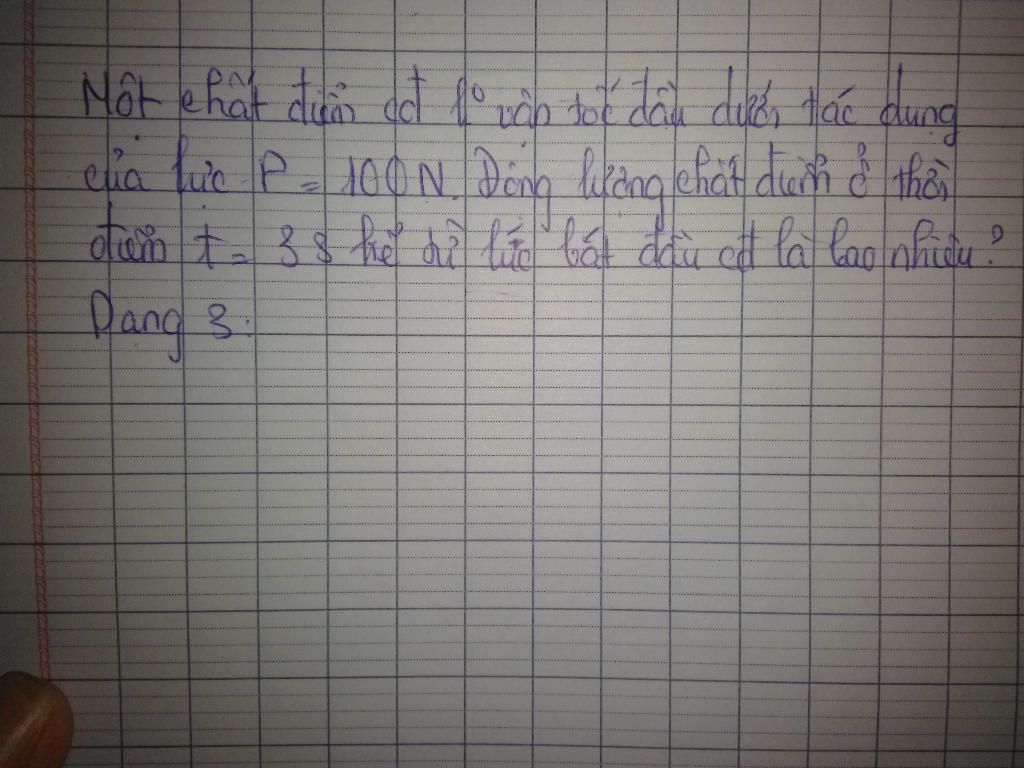 Một chất điểm cđ ko vận tốc đầu dưới tác dụng
của lực F = 100N. Động lượng chất điểm ở thời
điểm t = 3s kể từ lúc bắt đầu cđ là bao nhiêu?
Dạng 3.